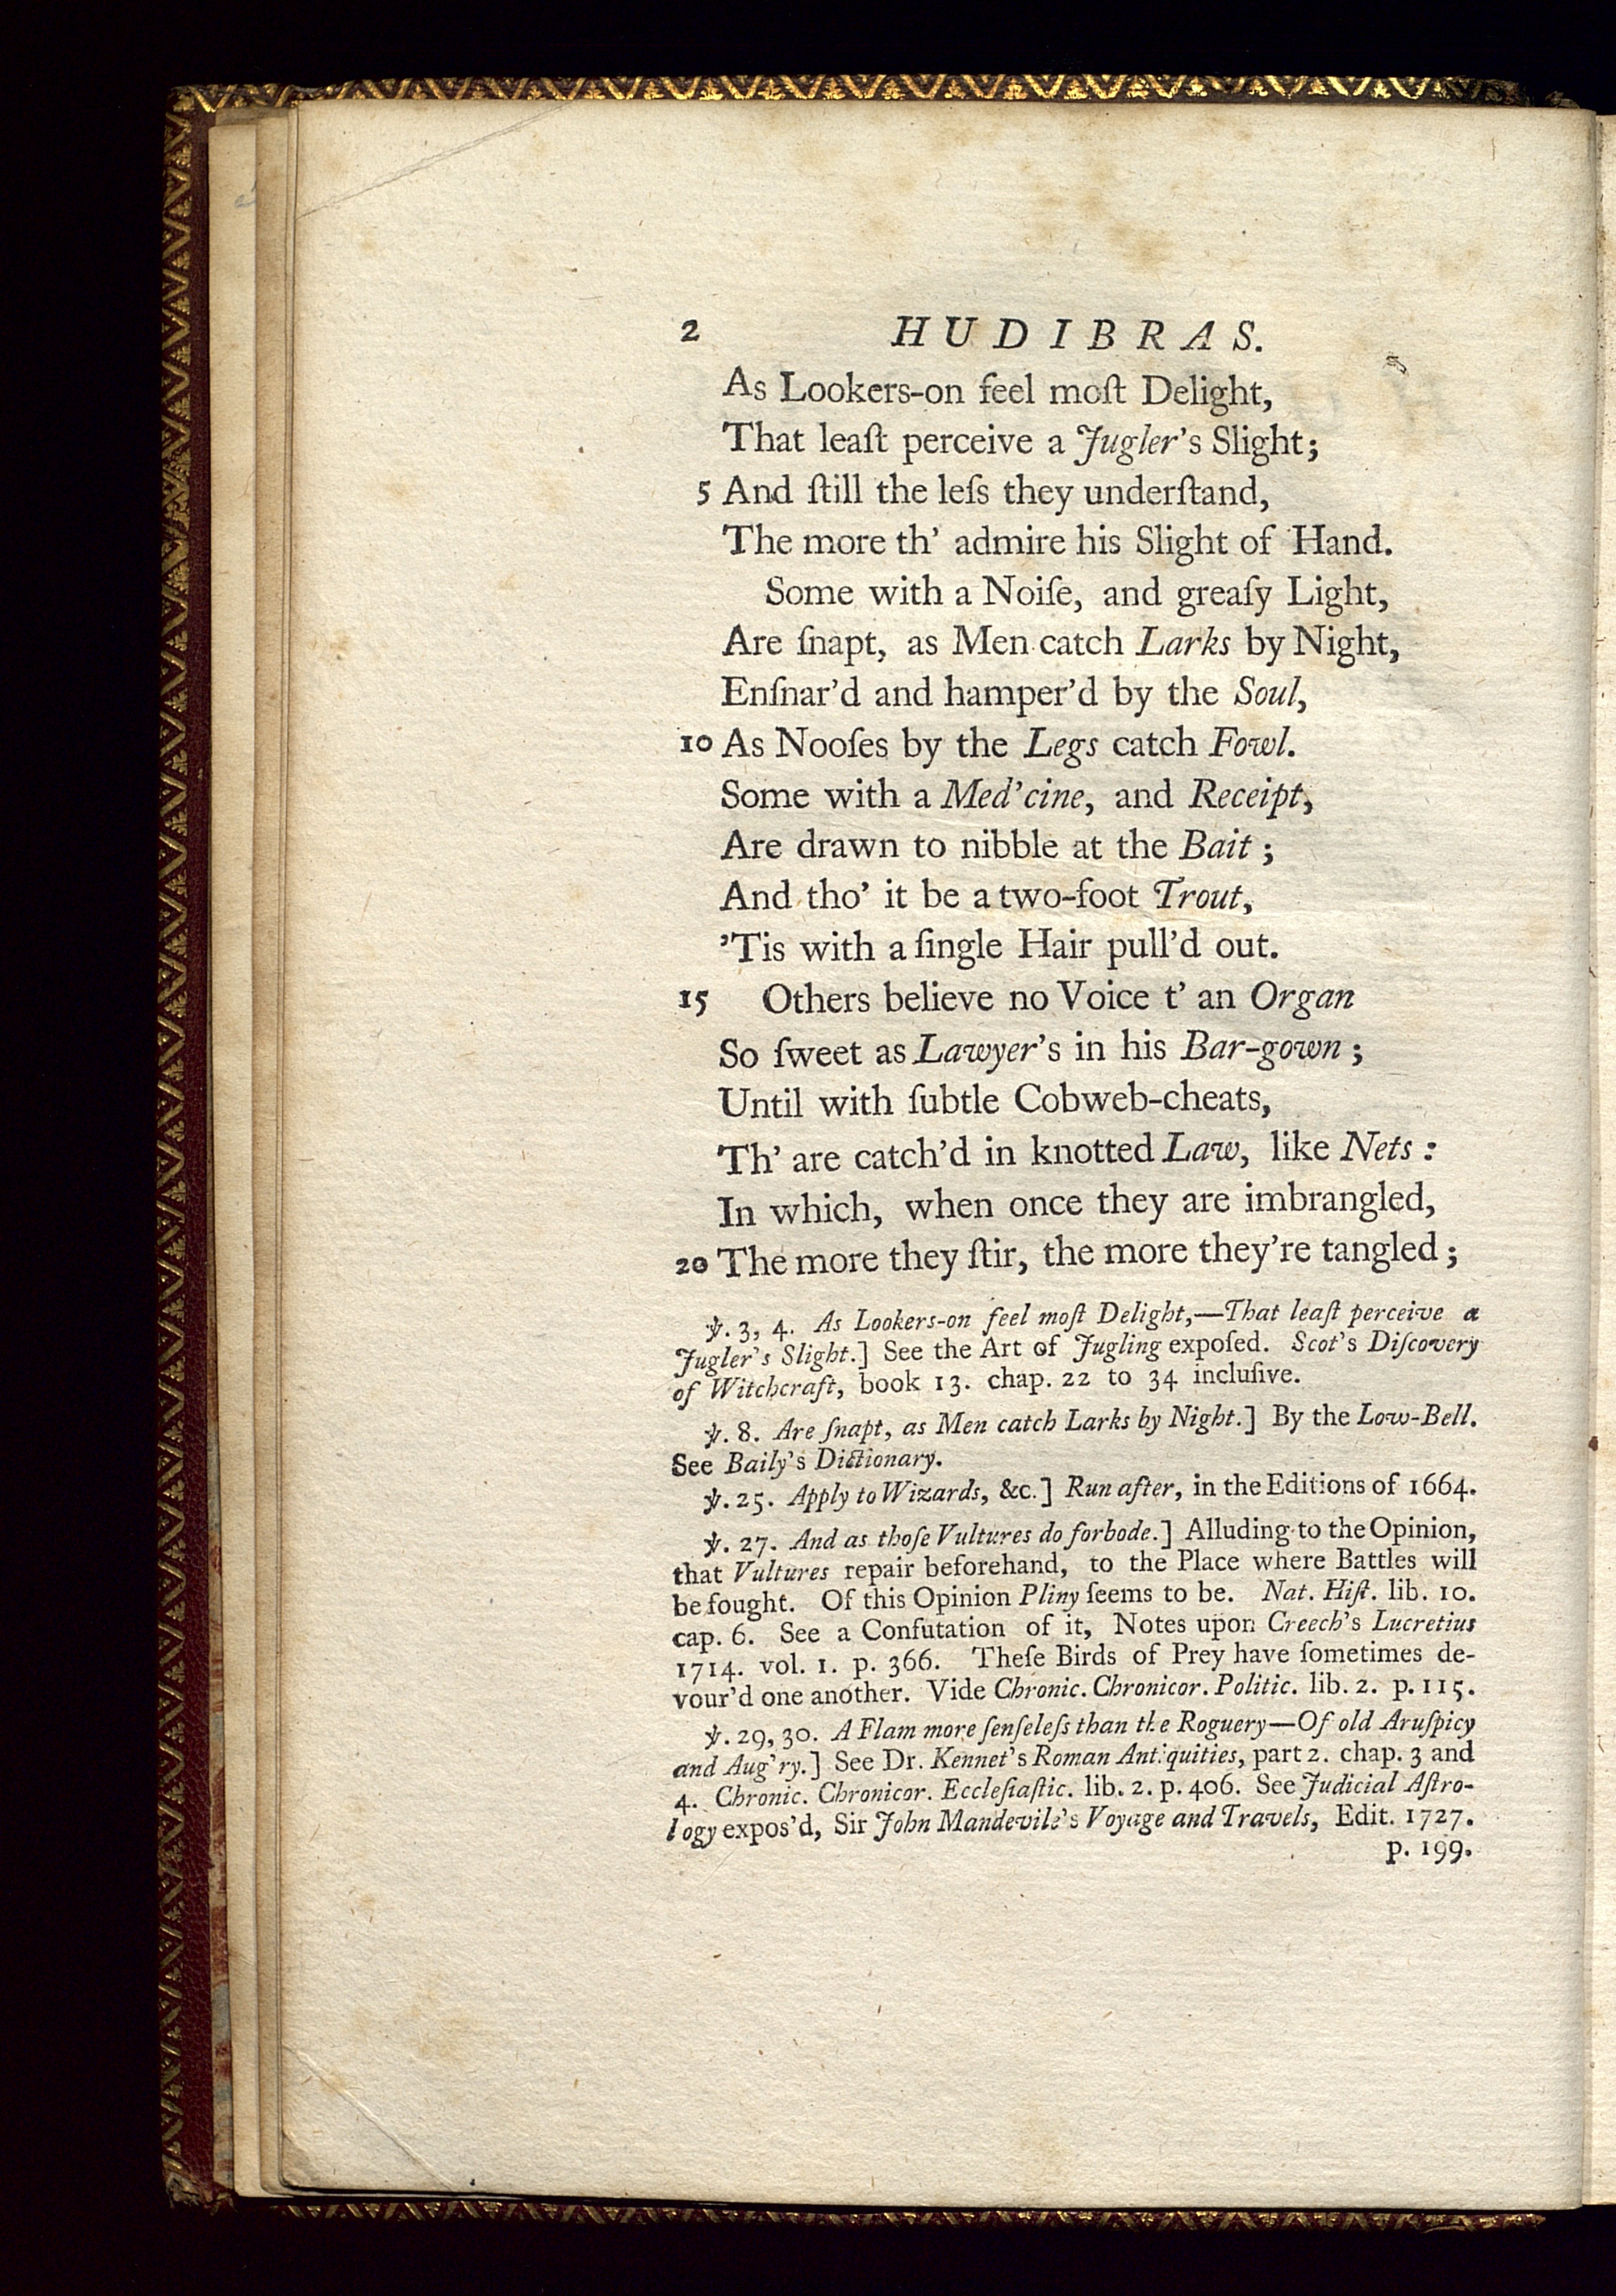 2 HUDIBRAS.
As Lookers-on feel moſt Delight,
That leaſt perceive a Jugler's Slight;
5 And ſtill the leſs they underſtand,
The more th' admire his Slight of Hand.
Some with a Noiſe, and greaſy Light,
Are ſnapt, as Men catch Larks by Night,
Enſnar'd and hamper'd by the Soul,
10 As Nooſes by the Legs catch Fowl.
Some with a Med'cine, and Receipt,
Are drawn to nibble at the Bait;
And tho' it be a two-foot Trout,
'Tis with a ſingle Hair pull'd out.
15 Others believe no Voice t' an Organ
So ſweet as Lawyer's in his Bar-gown;
Until with ſubtle Cobweb-cheats,
Th' are catch'd in knotted Law, like Nets:
In which, when once they are imbrangled,
20 The more they ſtir, the more they're tangled;
℣. 3, 4. As Lookers-on feel moſt Delight,—That leaſt perceive a
Jugler's Slight.] See the Art of Jugling expoſed. Scot's Diſcovery
of Witchcraft, book 13. chap. 22 to 34 incluſive.
℣. 8. Are ſnapt, as Men catch Larks by Night.] By the Low-Bell.
See Baily's Dictionary.
℣. 25. Apply to Wizards, &c.] Run after, in the Editions of 1664.
℣. 27. And as thoſe Vultures do forbode.] Alluding to the Opinion,
that Vultures repair beforehand, to the Place where Battles will
be fought. Of this Opinion Pliny ſeems to be. Nat. Hiſt. lib. 10.
cap. 6. See a Confutation of it, Notes upon Creech's Lucretius
1714. vol. 1. p. 366. Theſe Birds of Prey have ſometimes de-
vour'd one another. Vide Chronic. Chronicor. Politic. lib. 2. p. 115.
℣. 29, 30. A Flam more ſenſeleſs than the Roguery—Of old Aruſpicy
and Aug'ry.] See Dr. Kennet's Roman Antiquities, part 2. chap. 3 and
4. Chronic. Chronicor. Eccleſiaſtic. lib. 2. p. 406. See Judicial Aſtro-
logy expos'd, Sir John Mandevile's Voyage and Travels, Edit. 1727.
p. 199.